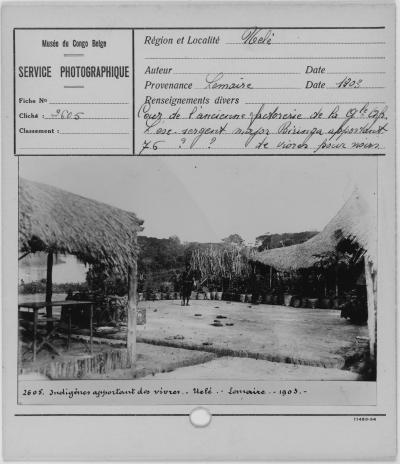 Musée du Congo Belge
SERVICE PHOTOGRAPHIQUE
Fiche No
Cliché : 2605
Classement :
Région et Localité Uelé
Auteur Date
Provenance Lemaire Date 1903
Renseignements divers
Cour de l'ancienne factorerie de la
L'ex-sergent major Biringa apportant
76 ? ? de vivres pour noirs
2605. Indigènes apportant des vivres.- Uelé.- Lemaire.- 1903.-